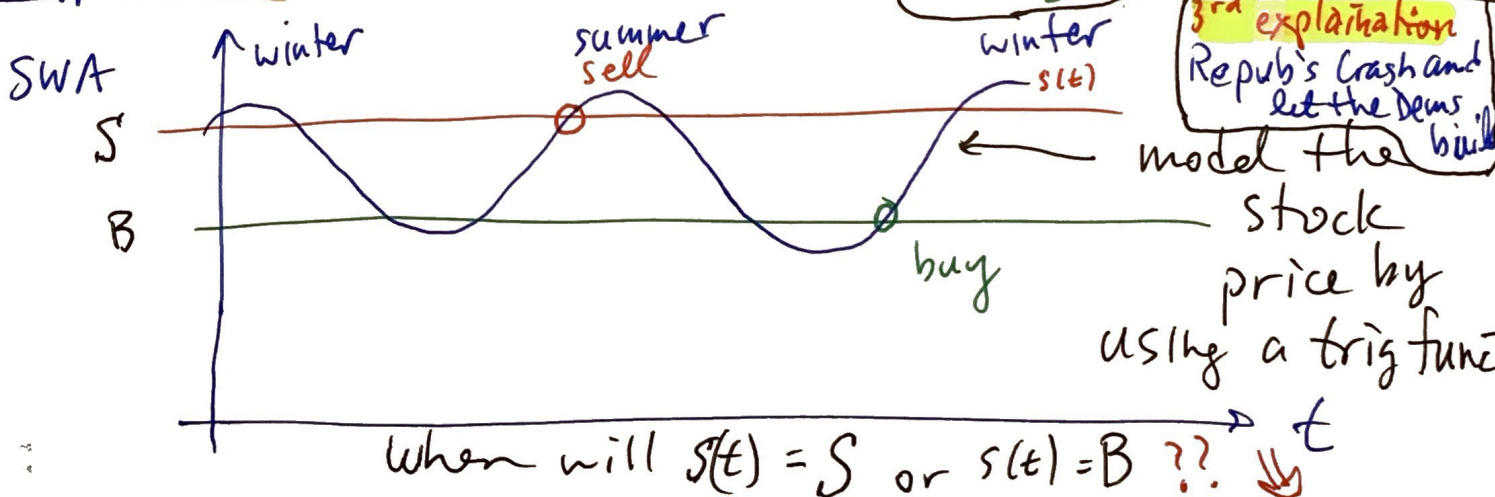 SWA
winter
summer
sell
winter
s(t)
3rd explaination
Repub's Crash and
let the Dems
S
B
buy
model the
stock
price by
using a trig func
t
when will s(t) = S or s(t) = B ??